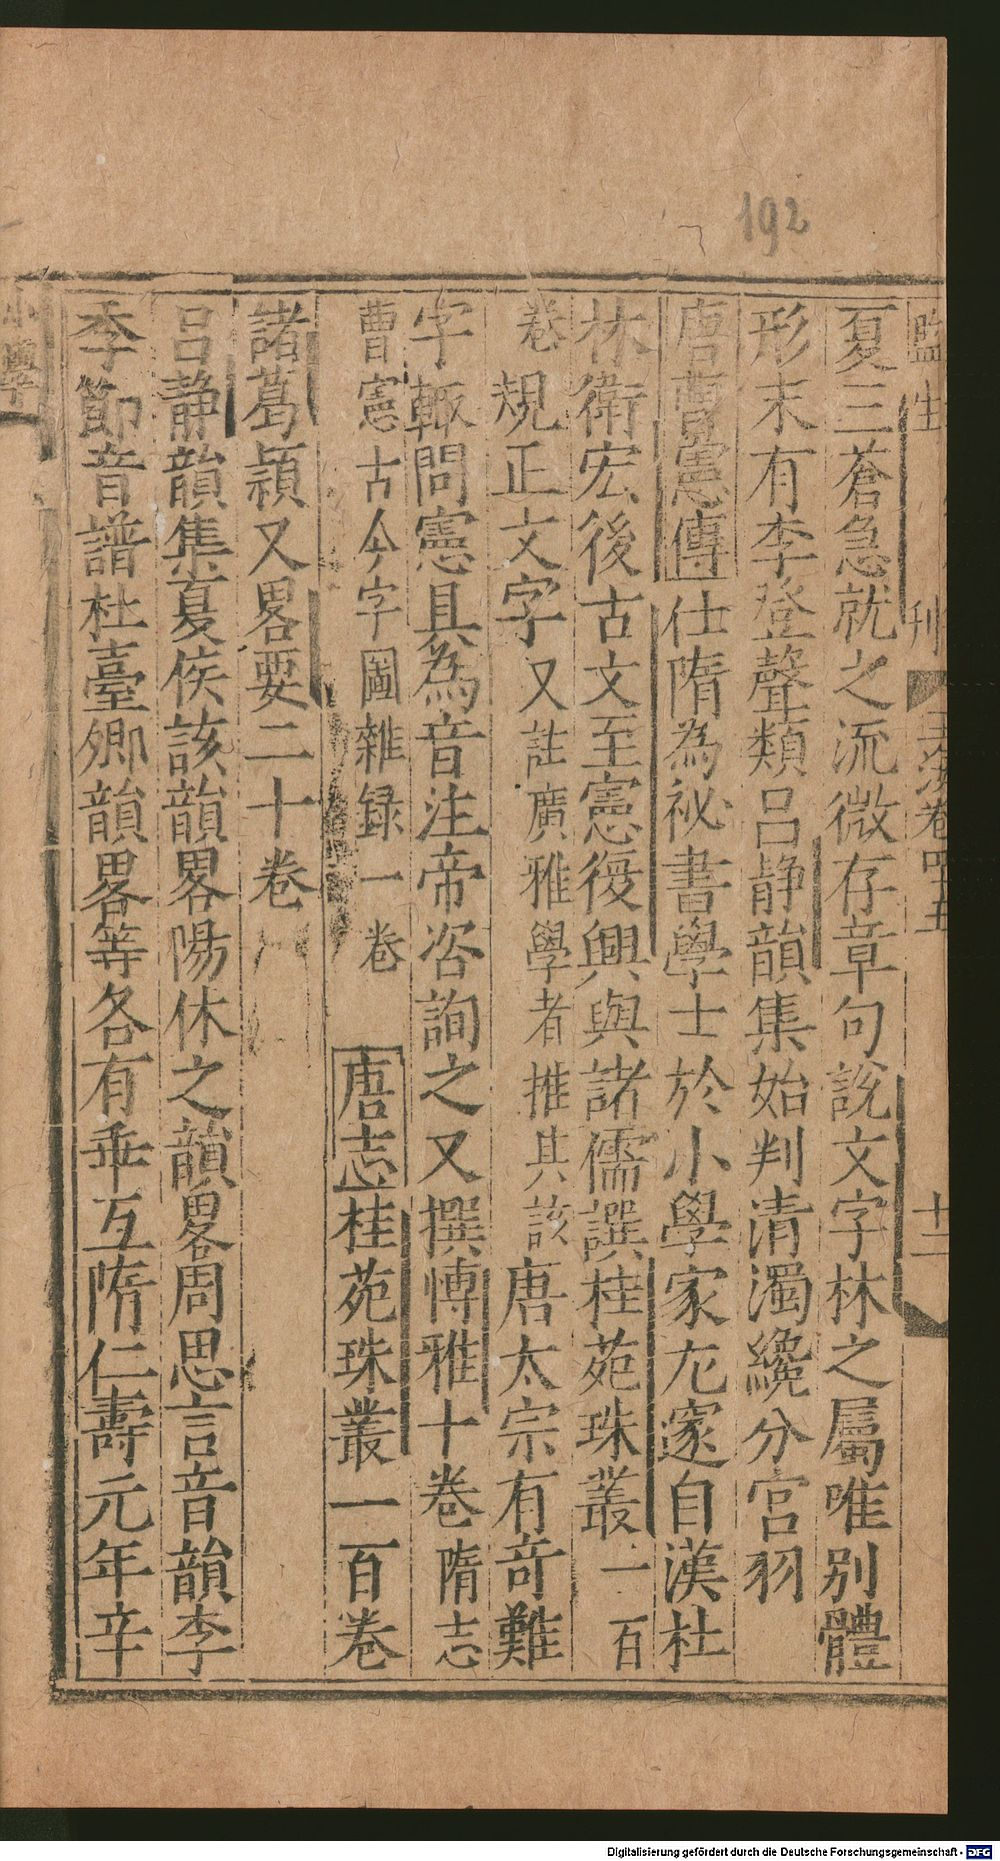 192
監生 刊 玉海卷四五 十二
夏三蒼急就之流微存章句說文字林之屬唯別體
形末有李登聲類呂静韻集始判清濁纔分宮羽
唐曹憲傳仕隋為祕書學士於小學家尤邃自漢杜
林衛宏後古文至憲復興與諸儒譔桂苑珠叢一百
卷規正文字又註廣雅學者推其該唐太宗有竒難
字輙問憲具為音注帝咨詢之又撰博雅十卷隋志
曹憲古今字圖雜録一卷 唐志桂苑珠叢一百卷
諸葛頴又畧要二十卷
呂静韻集夏侯該韻畧陽休之韻畧周思言音韻李
季節音譜杜臺卿韻畧等各有乖互隋仁壽元年辛
小學
Digitalisierung gefördert durch die Deutsche Forschungsgemeinschaft - DFG